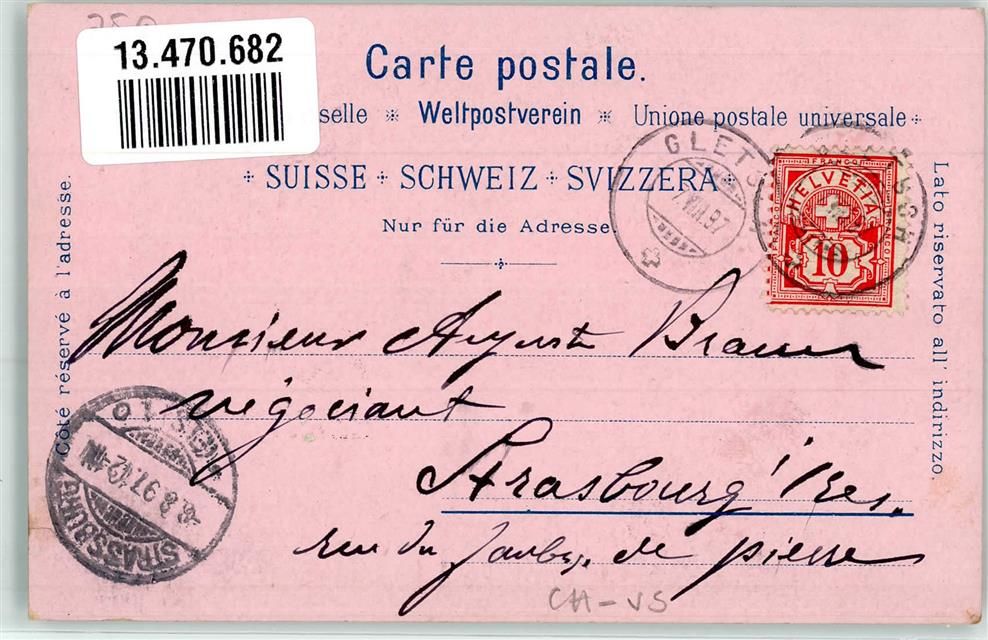 13.470.682
Carte postale.
selle * Weltpostverein * Unione postale universale
SUISSE + SCHWEIZ + SVIZZERA
Nur für die Adresse.
Côté réservé à l'adresse.
Lato riservato all' indirizzo
GLETSCH
FRANCO
HELVETIA
FRANCO
FRANCO
10
Monsieur Auguste
négociant
Strasbourg
rue du faubg. de pierre
STRASSBURG
8.8.97.12-1N
CH-VS